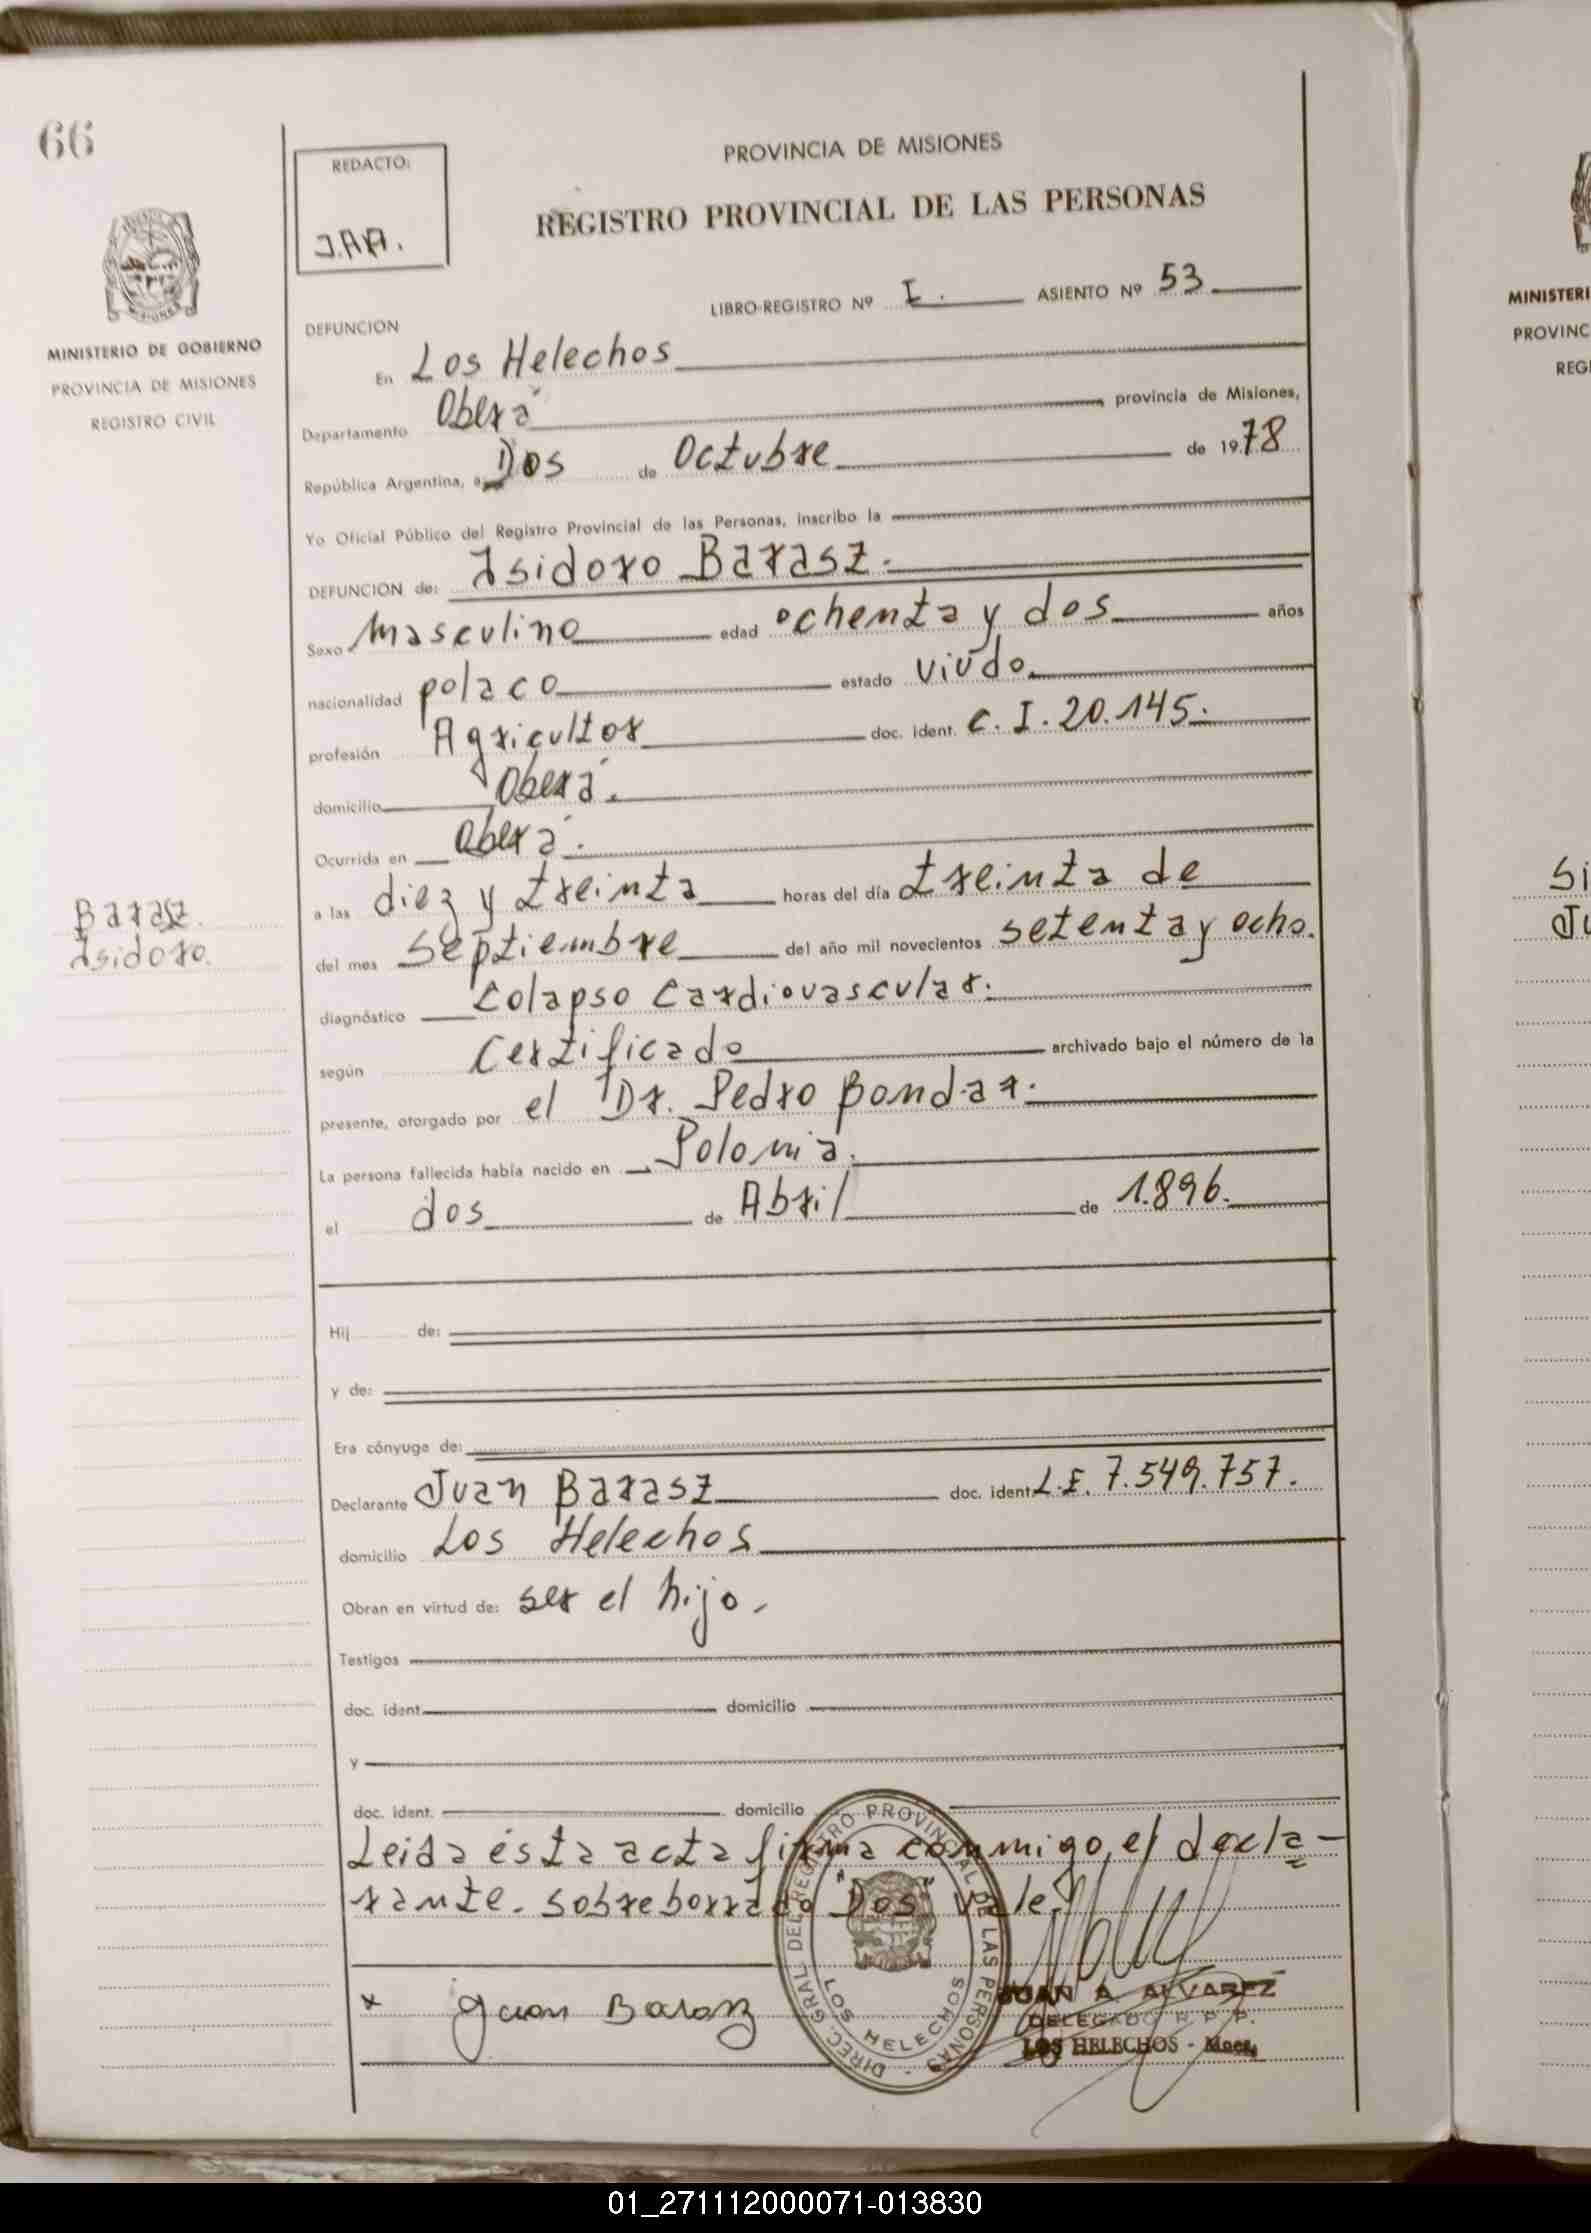 66
REDACTO:
J.A.A.
PROVINCIA DE MISIONES
REGISTRO PROVINCIAL DE LAS PERSONAS
LIBRO-REGISTRO Nº I. ASIENTO Nº 53
MINISTERIO DE GOBIERNO
PROVINCIA DE MISIONES
REGISTRO CIVIL
DEFUNCION
En Los Helechos
Departamento Oberá provincia de Misiones,
República Argentina, a Dos de Octubre de 1978
Yo Oficial Público del Registro Provincial de las Personas, inscribo la
DEFUNCION de: Isidoro Barasz.
Sexo Masculino edad ochenta y dos años
nacionalidad polaco estado viudo.
profesión Agricultor doc. ident. C. I. 20.145.
domicilio Oberá.
Ocurrida en Oberá.
Barasz.
Isidoro.
a las diez y treinta horas del día treinta de
del mes septiembre del año mil novecientos setenta y ocho.
diagnóstico Colapso Cardiovascular.
según Certificado archivado bajo el número de la
presente, otorgado por el Dr. Pedro Bondar.
La persona fallecida había nacido en Polonia.
el dos de Abril de 1.896.
Hij de:
y de:
Era cónyuge de:
Declarante Juan Barasz doc. ident. L.E. 7.549.757.
domicilio Los Helechos
Obran en virtud de: ser el hijo.
Testigos
doc. ident. domicilio
y
doc. ident. domicilio
Leida ésta acta firma conmigo, el decla-
rante. sobreborrado "Dos" Vale.
x Juan Barasz
DIREC. GRAL. DEL REGISTRO PROVINCIAL DE LAS PERSONAS -
LOS HELECHOS
JUAN A. ALVAREZ
DELEGADO R. P. P.
LOS HELECHOS - Mnes.
MINISTERI
PROVINC
REGI
Si
Ju
01_271112000071-013830